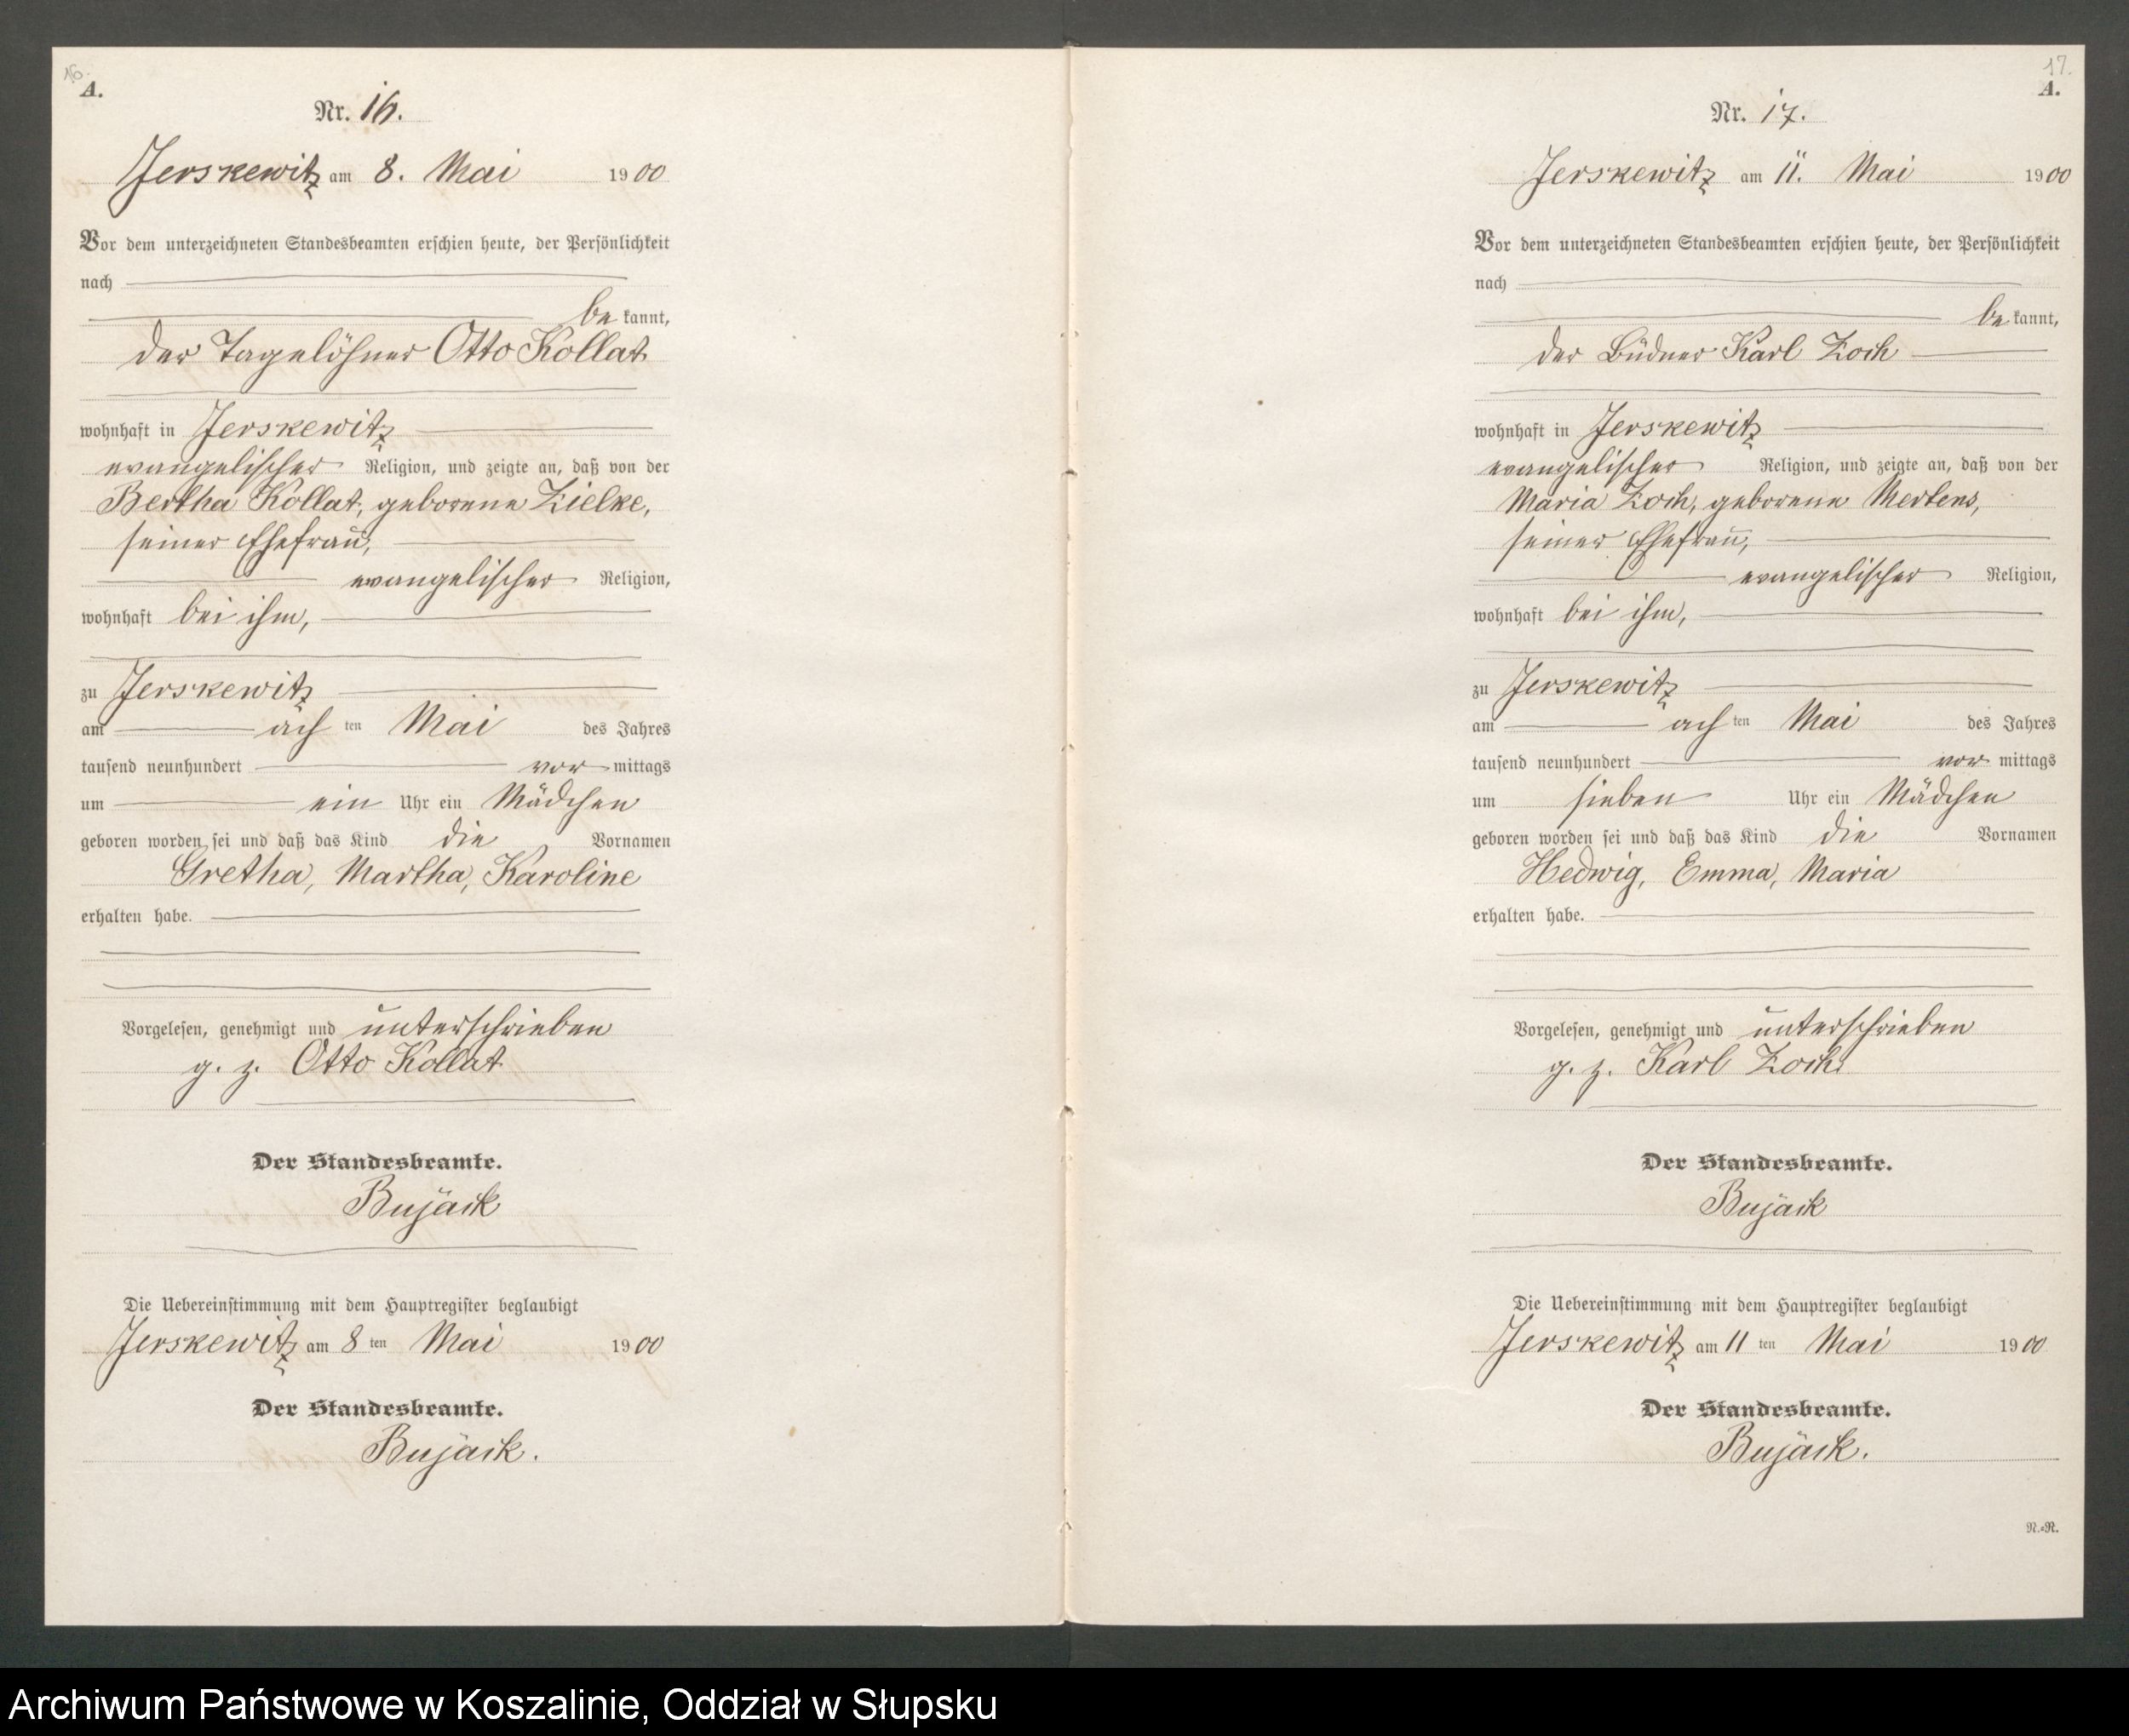 16.
A.
Nr. 16.
Jerskewitz am 8. Mai 1900
Vor dem unterzeichneten Standesbeamten erschien heute, der Persönlichkeit
nach
bekannt,
der Tagelöhner Otto Kollat
wohnhaft in Jerskewitz
evangelischer Religion, und zeigte an, daß von der
Bertha Kollat, geborene Zielke,
seiner Ehefrau,
evangelischer Religion,
wohnhaft bei ihm,
zu Jerskewitz
am ach ten Mai des Jahres
tausend neunhundert vor mittags
um ein Uhr ein Mädchen
geboren worden sei und daß das Kind die Vornamen
Gretha, Martha, Karoline
erhalten habe.
Vorgelesen, genehmigt und unterschrieben
g. z. Otto Kollat
Der Standesbeamte.
Bujack
Die Uebereinstimmung mit dem Hauptregister beglaubigt
Jerskewitz am 8 ten Mai 1900
Der Standesbeamte.
Bujack.
17.
A.
Nr. 17.
Jerskewitz am 11. Mai 1900
Vor dem unterzeichneten Standesbeamten erschien heute, der Persönlichkeit
nach
bekannt,
der Büdner Karl Zoch
wohnhaft in Jerskewitz
evangelischer Religion, und zeigte an, daß von der
Maria Zoch, geborene Mertens,
seiner Ehefrau,
evangelischer Religion,
wohnhaft bei ihm,
zu Jerskewitz
am ach ten Mai des Jahres
tausend neunhundert vor mittags
um sieben Uhr ein Mädchen
geboren worden sei und daß das Kind die Vornamen
Hedwig, Emma, Maria
erhalten habe.
Vorgelesen, genehmigt und unterschrieben
g. z. Karl Zoch
Der Standesbeamte.
Bujack
Die Uebereinstimmung mit dem Hauptregister beglaubigt
Jerskewitz am 11 ten Mai 1900
Der Standesbeamte.
Bujack.
N.=R.
Archiwum Państwowe w Koszalinie, Oddział w Słupsku